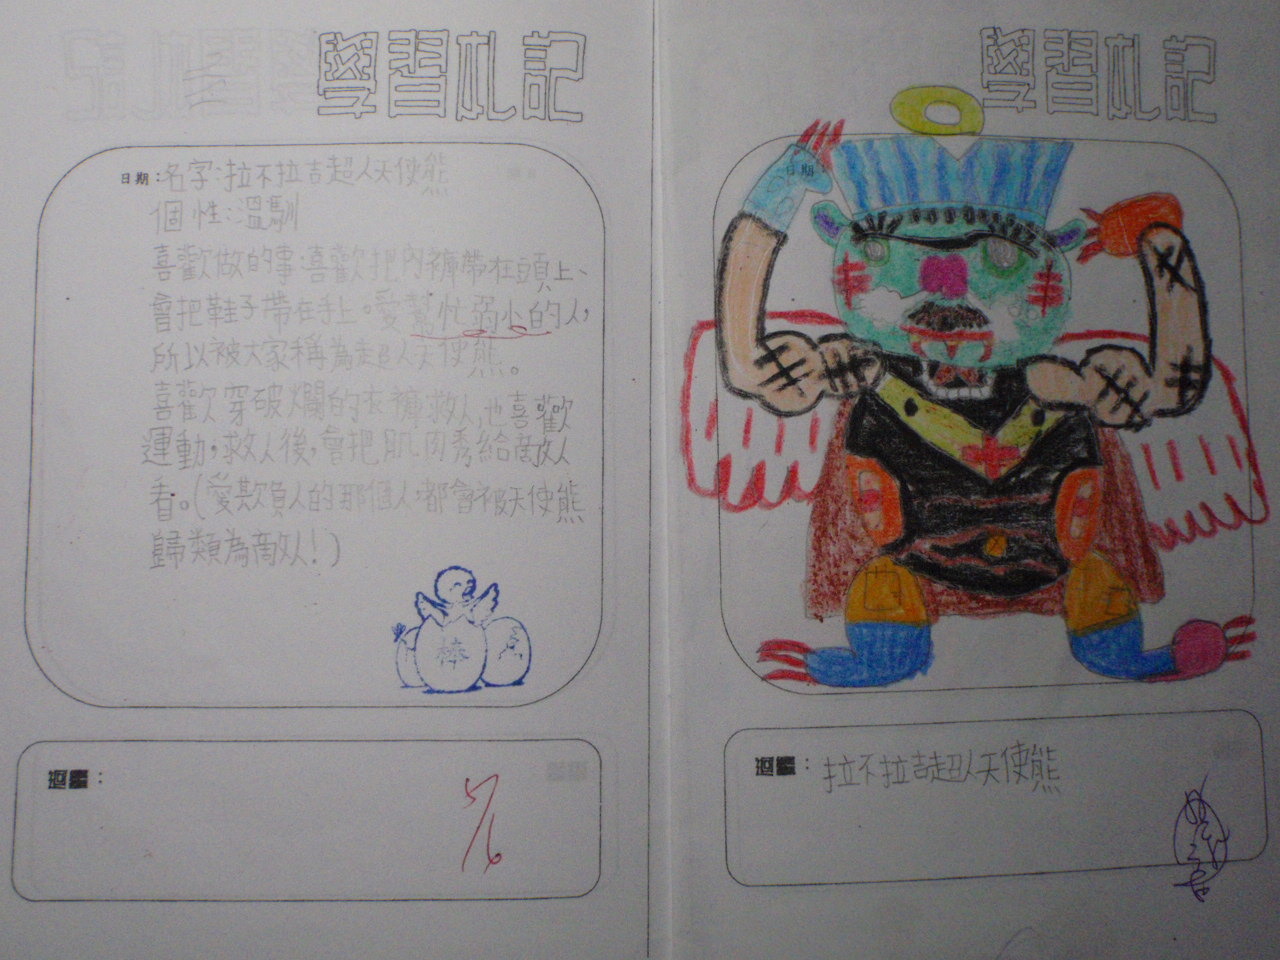 學習札記
日期：名字：拉不拉吉超人天使熊
個性：溫馴
喜歡做的事：喜歡把內褲帶在頭上、
會把鞋子帶在手上。愛幫忙弱小的人，
所以被大家稱為超人天使熊。
喜歡穿破爛的衣褲救人,也喜歡
運動，救人後，會把肌肉秀給敵人
看。(愛欺負人的那個人,都會被天使熊
歸類為敵人!)
棒
迴響：
5/6
學習札記
日期
迴響：拉不拉吉超人天使熊